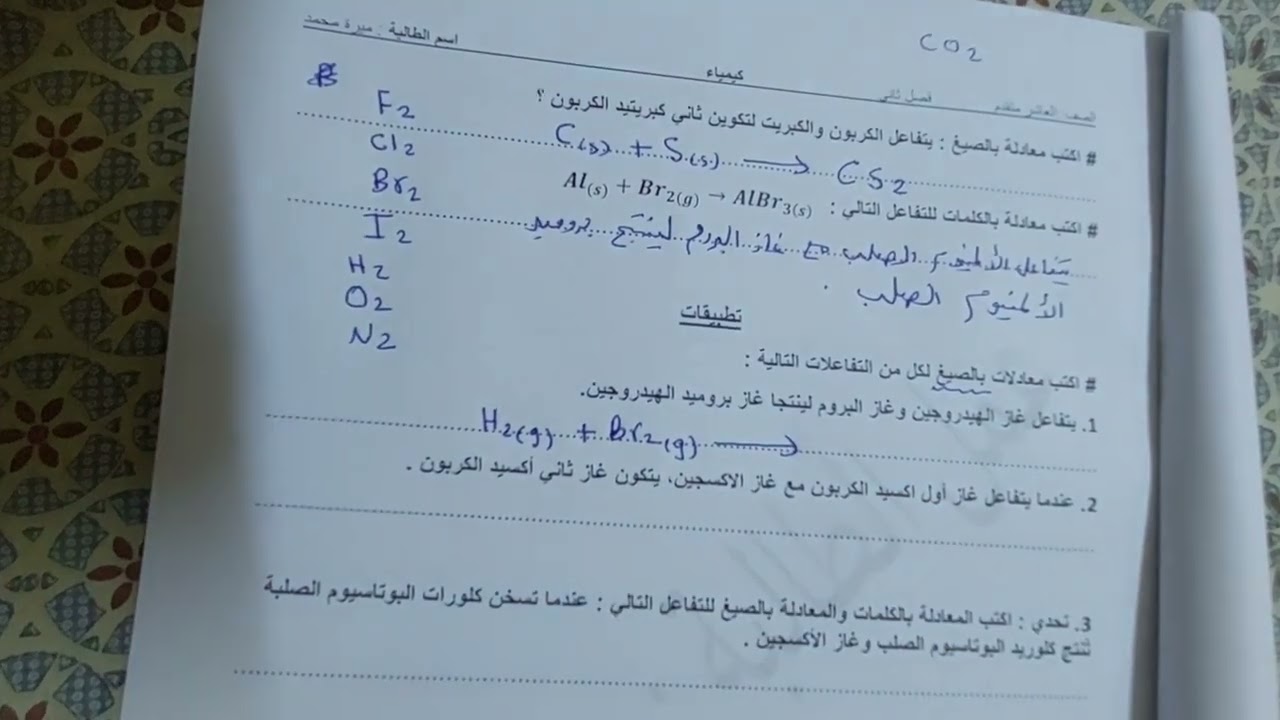 CO2
اسم الطالبة : ميرة محمد
كيمياء
الصف العاشر متقدم فصل ثاني
# اكتب معادلة بالصيغ : يتفاعل الكربون والكبريت لتكوين ثاني كبريتيد الكربون ؟
C(s) + S(s) → CS2
# اكتب معادلة بالكلمات للتفاعل التالي : Al(s) + Br2(g) → AlBr3(s)
يتفاعل الألمنيوم الصلب مع غاز البروم لينتج بروميد
الألمنيوم الصلب .
F2
Cl2
Br2
I2
H2
O2
N2
تطبيقات
# اكتب معادلات بالصيغ لكل من التفاعلات التالية :
1. يتفاعل غاز الهيدروجين وغاز البروم لينتجا غاز بروميد الهيدروجين.
H2(g) + Br2(g) →
2. عندما يتفاعل غاز أول اكسيد الكربون مع غاز الاكسجين، يتكون غاز ثاني أكسيد الكربون .
3. تحدي : اكتب المعادلة بالكلمات والمعادلة بالصيغ للتفاعل التالي : عندما تسخن كلورات البوتاسيوم الصلبة
تُنتج كلوريد البوتاسيوم الصلب وغاز الأكسجين .